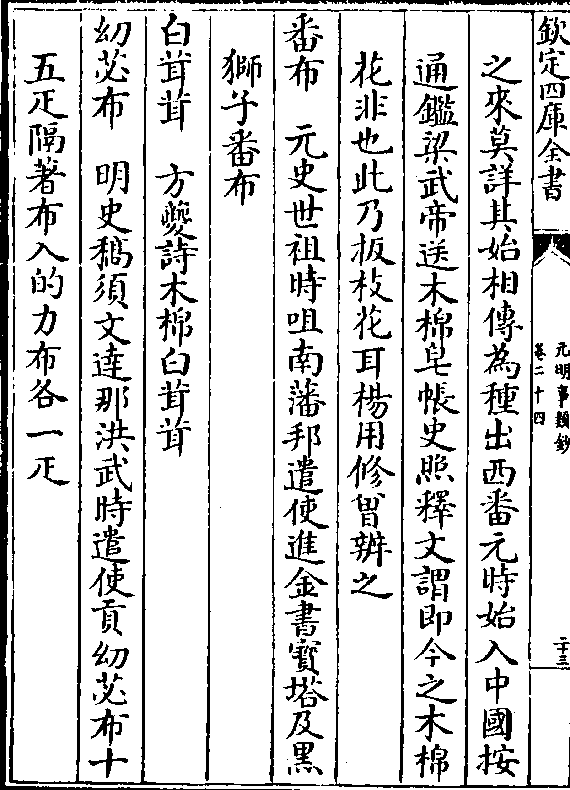 欽定四庫全書
元明事類鈔
卷二十四
二十三
之來莫詳其始相傳為種出西番元時始入中國按
通鑑梁武帝送木棉皂帳史照釋文謂即今之木棉
花非也此乃板枝花耳楊用修曾辨之
番布　元史世祖時咀南藩邦遣使進金書寶塔及黑
獅子番布
白茸茸　方夔詩木棉白茸茸
幼苾布　明史稿須文達那洪武時遣使貢幼苾布十
五疋隔著布入的力布各一疋